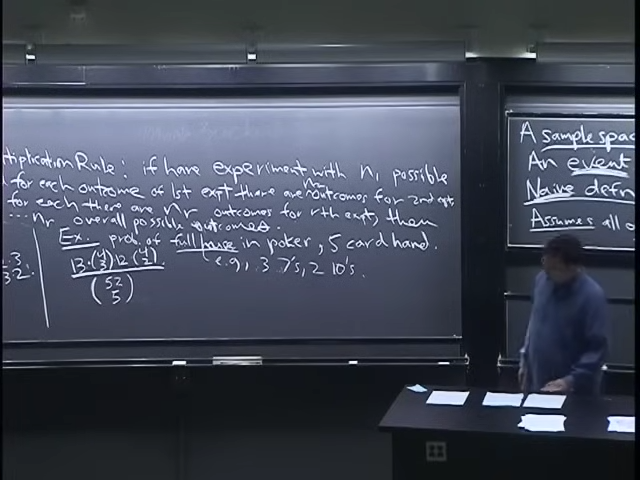 tiplication Rule: if have experiment with n₁ possible
for each outcome of 1st expt there are n₂ outcomes for 2nd expt,
for each there are nᵣ outcomes for rth expt, then
... nᵣ overall possible outcomes.
Ex. prob. of full house in poker, 5 card hand.
(e.g., 3 7's, 2 10's.
13·(4 3) 12 (4 2)
(52 5)
A sample spac
An event
Naive defn
Assumes all o